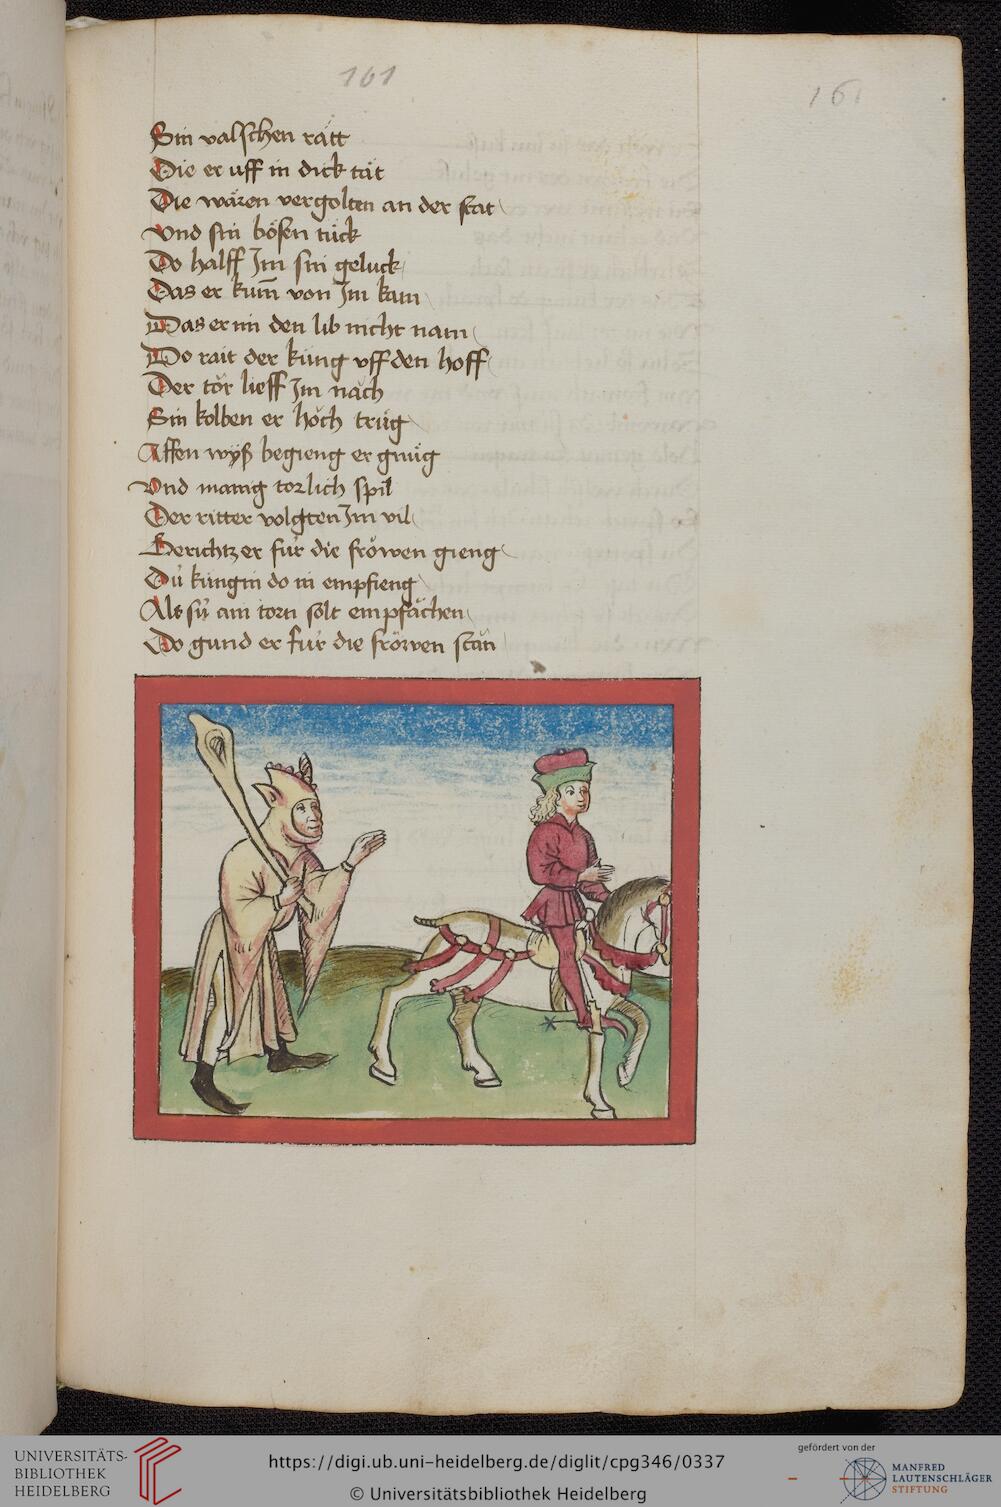 161
161
Sin valschen rätt
Die er uff in dick tät
Die wären vergolten an der stat
vnd sin bösen tück
Do halff Jm sin geluck
Das er kum̄ von Jm kam
Das er im den lib nicht nam
Do rait der küng vff den hoff
Der tör lieff Jm näch
Sin kolben er höch trüg
Affen wyß begieng er gnüg
Vnd manig torlich spil
Der ritter volgten Jm vil
Berichtz er für die fröwen gieng
Dü küngin do in empfieng
Als sü ain torn solt empfächen
Do gund er für die fröwen stän
UNIVERSITÄTS-
BIBLIOTHEK
HEIDELBERG
https://digi.ub.uni-heidelberg.de/diglit/cpg346/0337
© Universitätsbibliothek Heidelberg
gefördert von der
MANFRED
LAUTENSCHLÄGER
STIFTUNG